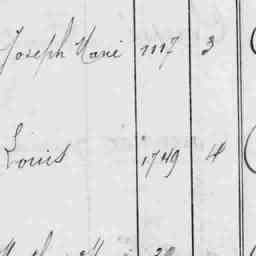 Joseph Marie 1117 3
Louis 1749 4